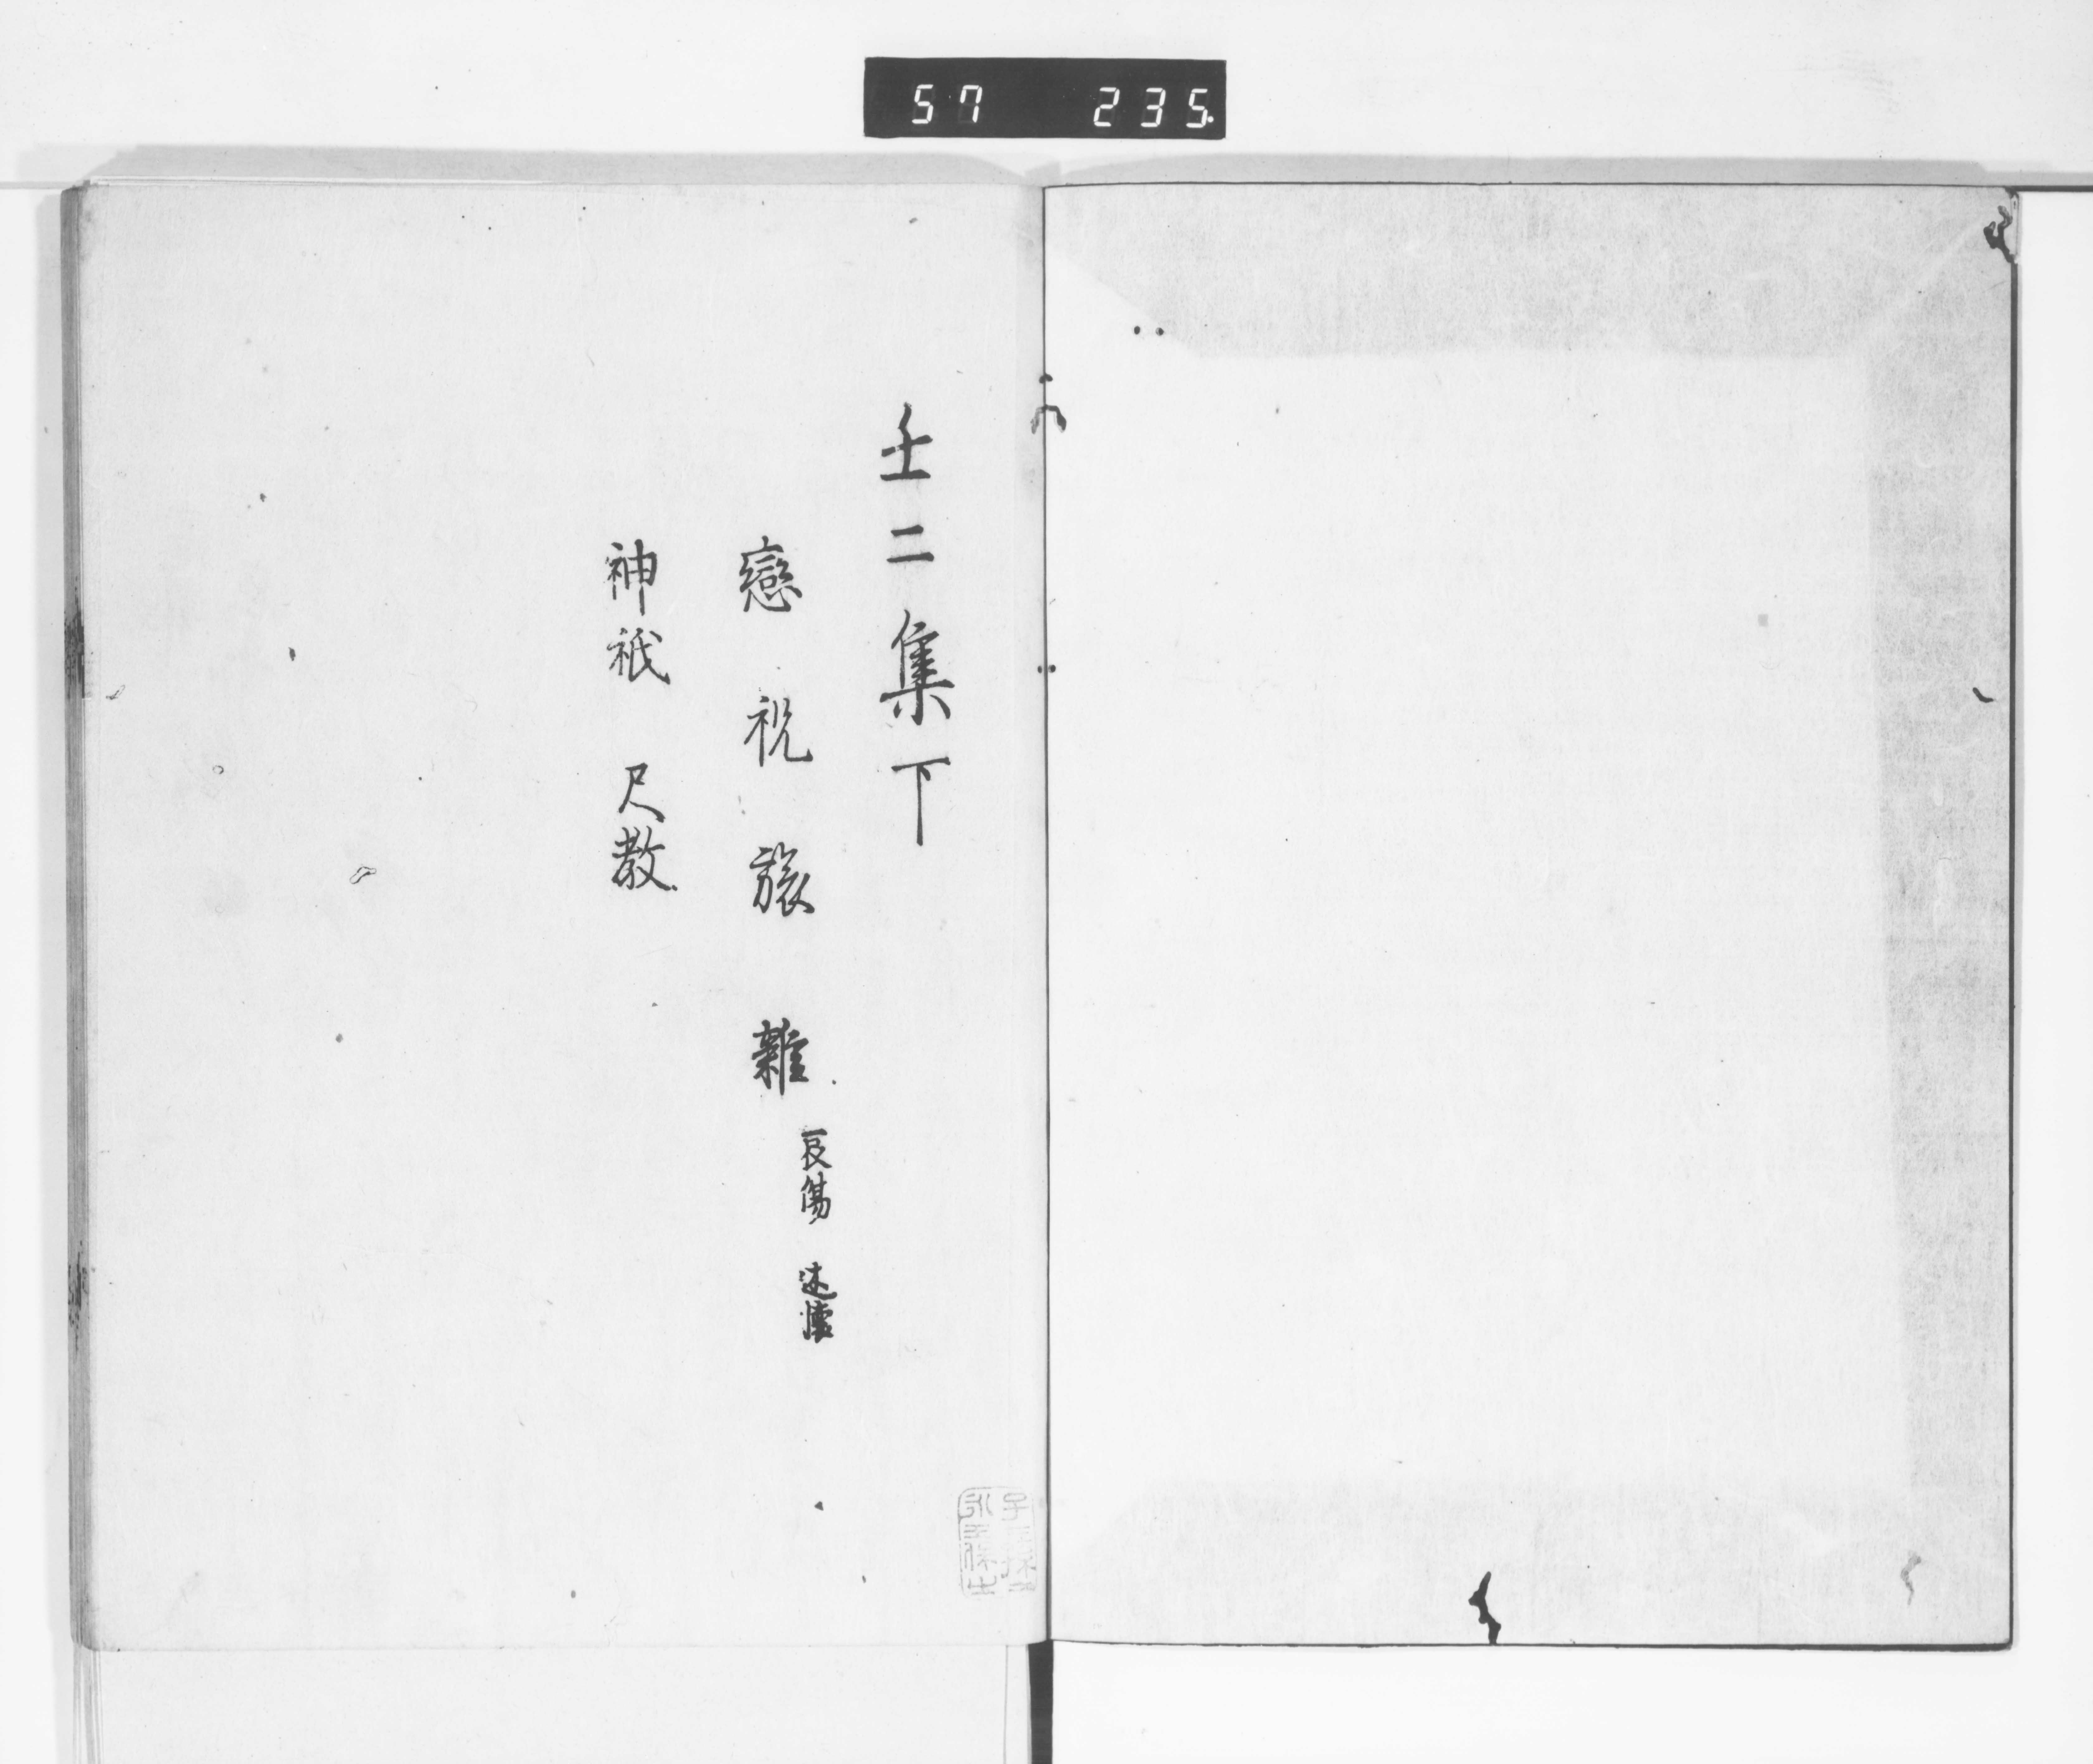 57 235
壬二集下
戀 祝 旅 雜 哀傷 述懷
神祇 尺教